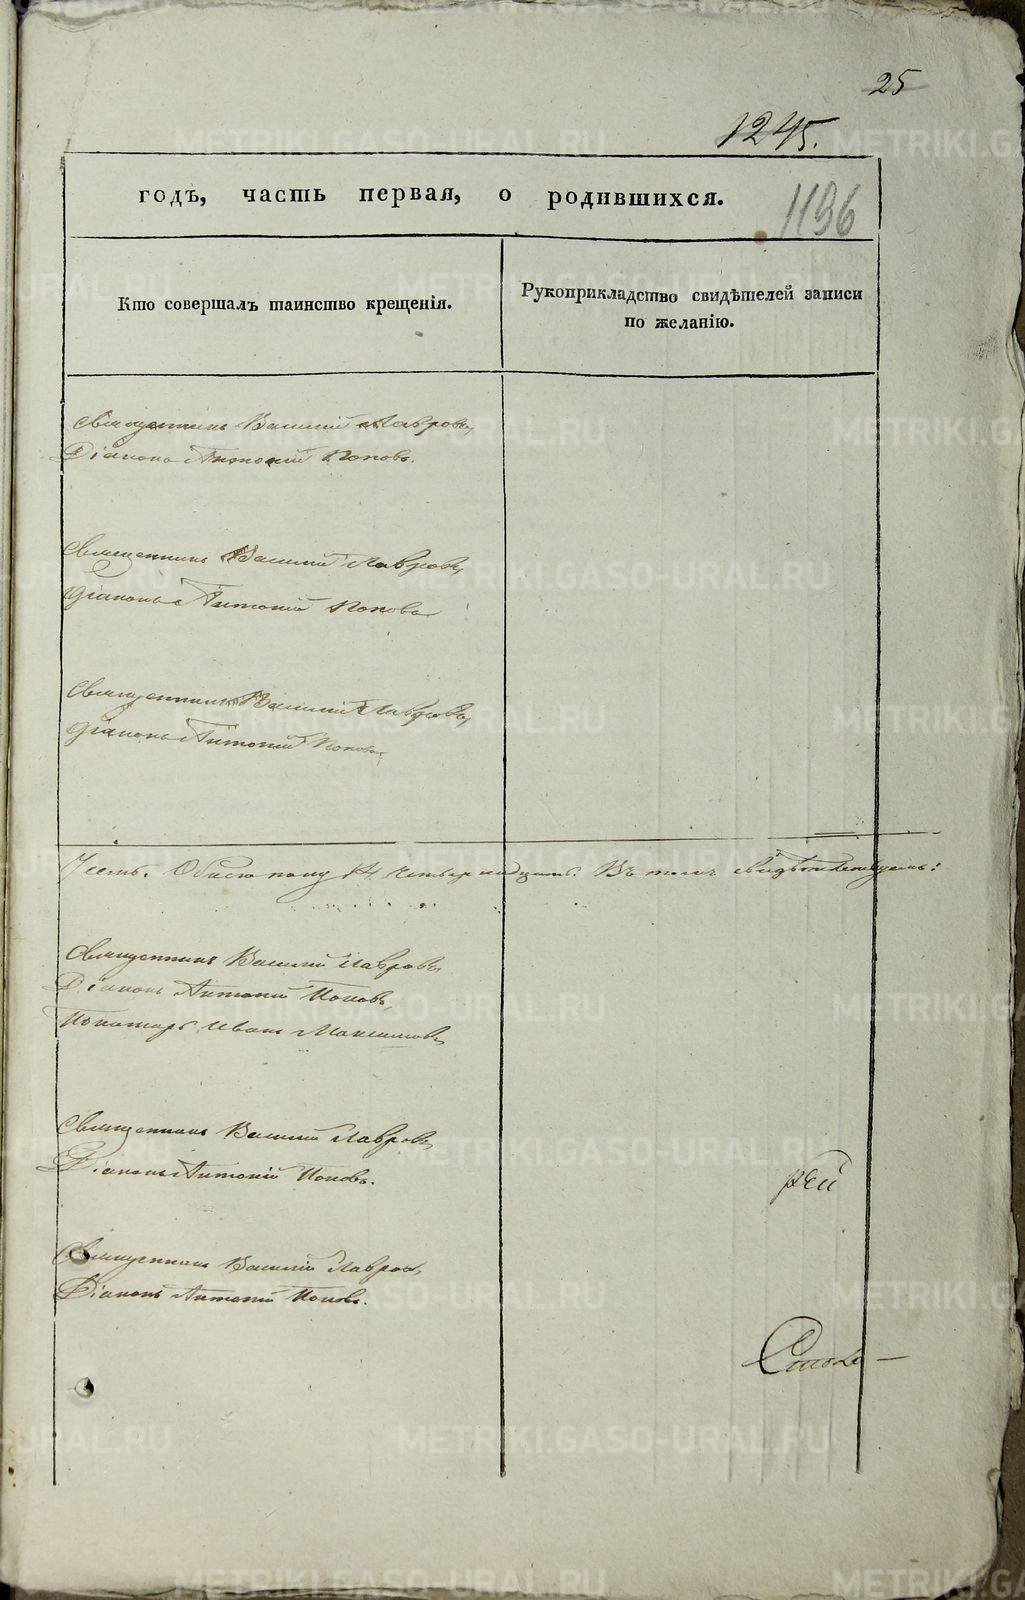 25
1245.
1196
годъ, часть первая, о родившихся.
Кто совершалъ таинство крещенія.
Рукоприкладство свидѣтелей записи
по желанію.
Священникъ Василій Лавровъ,
Діаконъ Антоній Поповъ.
Священникъ Василій Лавровъ,
Діаконъ Антоній Поповъ
Священникъ Василій Лавровъ,
Діаконъ Антоній Поповъ,
Обоего полу 14. четырнадцать. Въ томъ свидѣтельствуемъ:
Священникъ Василій Лавровъ,
Діаконъ Антоній Поповъ,
Пономарь Иванъ Максимовъ,
Священникъ Василій Лавровъ,
Діаконъ Антоній Поповъ.
рей
Священникъ Василій Лавровъ,
Діаконъ Антоній Поповъ.
METRIKI.GASO-URAL.RU